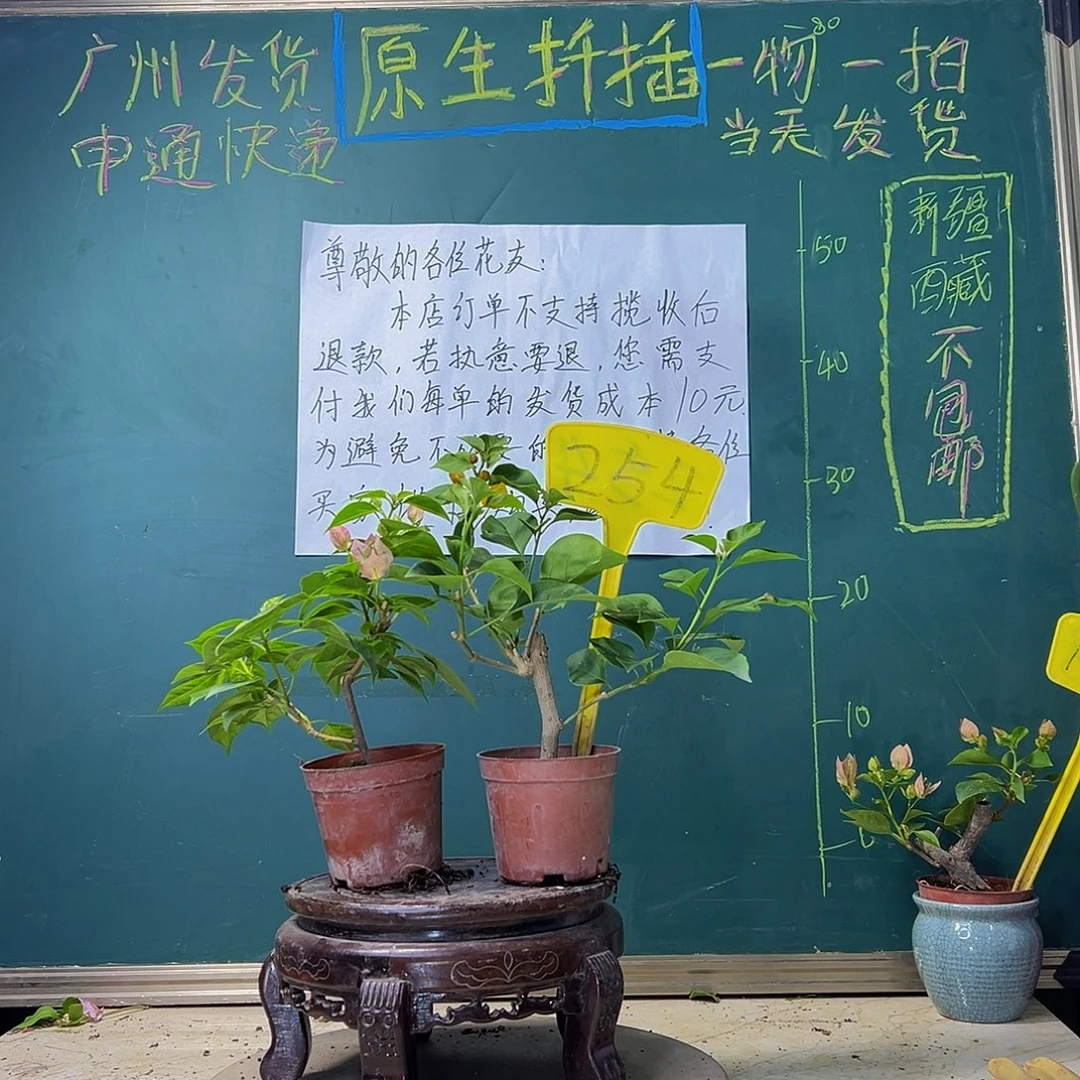 广州发货
原生扦插
一物一拍
80
申通快递
当天发货
尊敬的各位花友:
本店订单不支持揽收后
退款,若执意要退,您需支
付我们每单的发货成本10元
为避免不 的 各位
买
254
50
40
30
20
10
新疆
西藏
不
包
邮